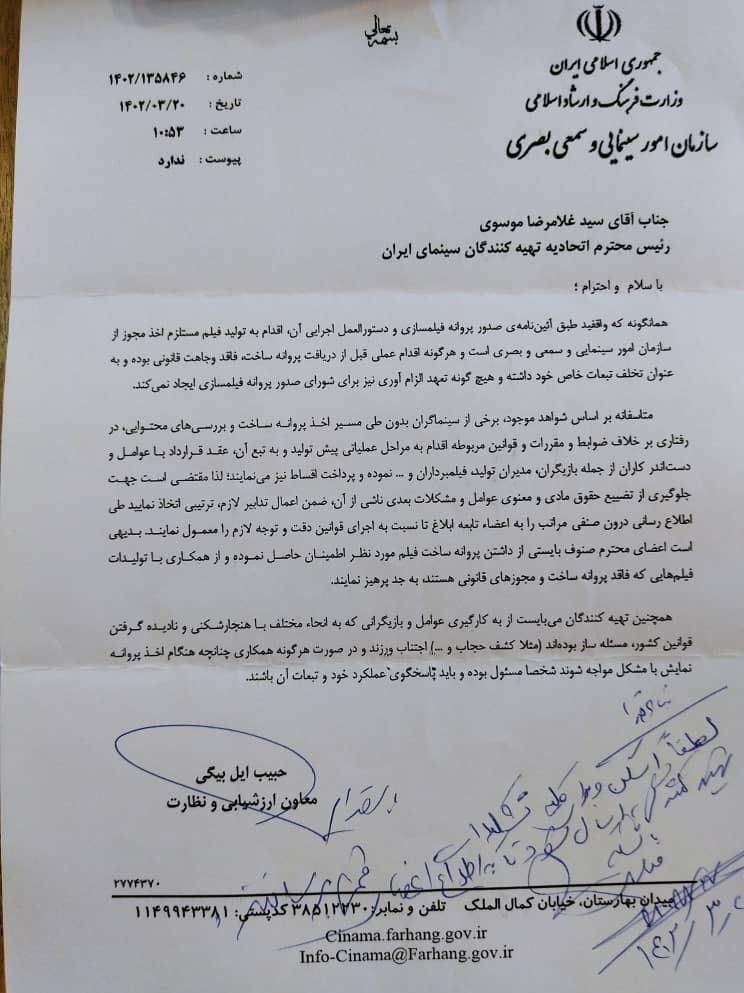 بسمه تعالی
جمهوری اسلامی ایران
وزارت فرهنگ و ارشاد اسلامی
سازمان امور سینمایی و سمعی بصری
شماره : ۱۴۰۲/۱۳۵۸۴۶
تاریخ : ۱۴۰۲/۰۳/۲۰
ساعت : ۱۰:۵۳
پیوست : ندارد
جناب آقای سید غلامرضا موسوی
رئیس محترم اتحادیه تهیه کنندگان سینمای ایران
با سلام و احترام ؛
همانگونه که واقفید طبق آئین‌نامه‌ی صدور پروانه فیلمسازی و دستورالعمل اجرایی آن، اقدام به تولید فیلم مستلزم اخذ مجوز از
سازمان امور سینمایی و سمعی و بصری است و هرگونه اقدام عملی قبل از دریافت پروانه ساخت، فاقد وجاهت قانونی بوده و به
عنوان تخلف تبعات خاص خود داشته و هیچ گونه تعهد الزام آوری نیز برای شورای صدور پروانه فیلمسازی ایجاد نمی‌کند.
متاسفانه بر اساس شواهد موجود، برخی از سینماگران بدون طی مسیر اخذ پروانه ساخت و بررسی‌های محتوایی، در
رفتاری بر خلاف ضوابط و مقررات و قوانین مربوطه اقدام به مراحل عملیاتی پیش تولید و به تبع آن، عقد قرارداد با عوامل و
دست‌اندر کاران از جمله بازیگران، مدیران تولید، فیلمبرداران و ... نموده و پرداخت اقساط نیز می‌نمایند؛ لذا مقتضی است جهت
جلوگیری از تضییع حقوق مادی و معنوی عوامل و مشکلات بعدی ناشی از آن، ضمن اعمال تدابیر لازم، ترتیبی اتخاذ نمایید طی
اطلاع رسانی درون صنفی مراتب را به اعضاء تابعه ابلاغ تا نسبت به اجرای قوانین دقت و توجه لازم را معمول نمایند. بدیهی
است اعضای محترم صنوف بایستی از داشتن پروانه ساخت فیلم مورد نظر اطمینان حاصل نموده و از همکاری با تولیدات
فیلم‌هایی که فاقد پروانه ساخت و مجوزهای قانونی هستند، به جد پرهیز نمایند.
همچنین تهیه کنندگان می‌بایست از به کارگیری عوامل و بازیگرانی که به انحاء مختلف با هنجارشکنی و نادیده گرفتن
قوانین کشور، مسئله ساز بوده‌اند (مثلا کشف حجاب و ...) اجتناب ورزند و در صورت هرگونه همکاری چنانچه هنگام اخذ پروانه
نمایش با مشکل مواجه شوند شخصا مسئول بوده و باید پاسخگوی عملکرد خود و تبعات آن باشند.
حبیب ایل بیگی
معاون ارزشیابی و نظارت
لطفاً
ارسال
تا به اطلاع اعضای
۲۷۷۴۳۷۰
میدان بهارستان، خیابان کمال الملک تلفن و نمابر: ۳۸۵۱۲۲۳۰ کدپستی: ۱۱۴۹۹۴۳۳۸۱
Cinama.farhang.gov.ir
Info-Cinama@Farhang.gov.ir